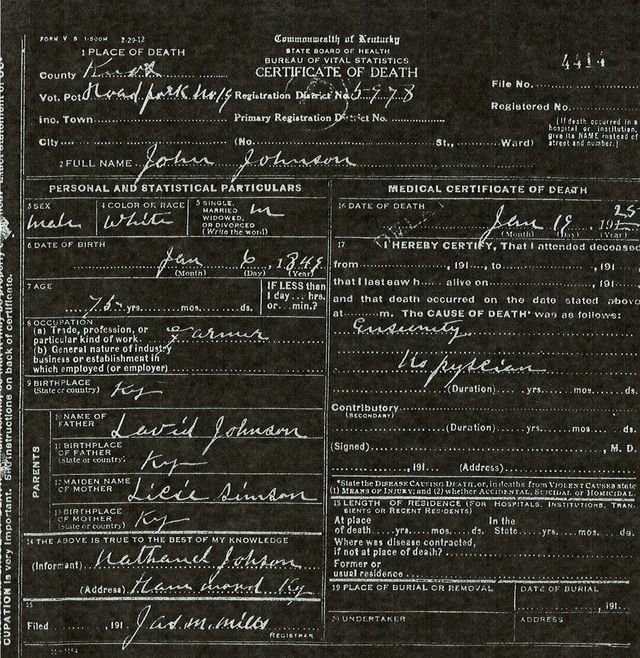 FORM V S 1-500M 2-29-12
Commonwealth of Kentucky
STATE BOARD OF HEALTH
BUREAU OF VITAL STATISTICS
CERTIFICATE OF DEATH
4414
1 PLACE OF DEATH
County Knox
Vot. Pct Road fork No 19 Registration District No. 5978
File No.
Inc. Town Primary Registration District No.
Registered No.
City (No. St., Ward)
[If death occurred in a
hospital or institution,
give its NAME instead of
street and number.]
2 FULL NAME John Johnson
PERSONAL AND STATISTICAL PARTICULARS
3 SEX
male
4 COLOR OR RACE
White
5 SINGLE,
MARRIED
WIDOWED,
OR DIVORCED
(Write the word)
m
6 DATE OF BIRTH
Jan 6, 1849
(Month) (Day) (Year)
7 AGE
75 yrs. mos. ds.
IF LESS than
1 day hrs.
or min.?
8 OCCUPATION
(a) Trade, profession, or
particular kind of work. Farmer
(b) General nature of industry
business or establishment in
which employed (or employer)
9 BIRTHPLACE
(State or country) Ky
PARENTS
10 NAME OF
FATHER David Johnson
11 BIRTHPLACE
OF FATHER
(State or country) Ky
12 MAIDEN NAME
OF MOTHER Licie Simson
13 BIRTHPLACE
OF MOTHER
(State or country) Ky
14 THE ABOVE IS TRUE TO THE BEST OF MY KNOWLEDGE
(Informant) Nathanel Johson
(Address) Hammond Ky
15
Filed , 191 Jas. M. Mills
REGISTRAR
MEDICAL CERTIFICATE OF DEATH
16 DATE OF DEATH
Jan 19, 1925
(Month) (Day) (Year)
17 I HEREBY CERTIFY, That I attended deceased
from , 191 , to , 191
that I last saw h alive on , 191
and that death occurred on the date stated above
at m. The CAUSE OF DEATH* was as follows:
Ensumity
No pyscian
(Duration) yrs. mos. ds.
Contributory
(SECONDARY)
(Duration) yrs. mos. ds.
(Signed) , M. D.
, 191 (Address)
*State the DISEASE CAUSING DEATH, or, in deaths from VIOLENT CAUSES state
(1) MEANS OF INJURY; and (2) whether ACCIDENTAL, SUICIDAL OR HOMICIDAL
18 LENGTH OF RESIDENCE (FOR HOSPITALS, INSTITUTIONS, TRANSIENTS OR RECENT RESIDENTS)
At place In the
of death yrs. mos. ds. State yrs. mos. ds.
Where was disease contracted,
if not at place of death?
Former or
usual residence
19 PLACE OF BURIAL OR REMOVAL
DATE OF BURIAL
, 191
20 UNDERTAKER
ADDRESS
CUPATION is very important. See instructions on back of certificate